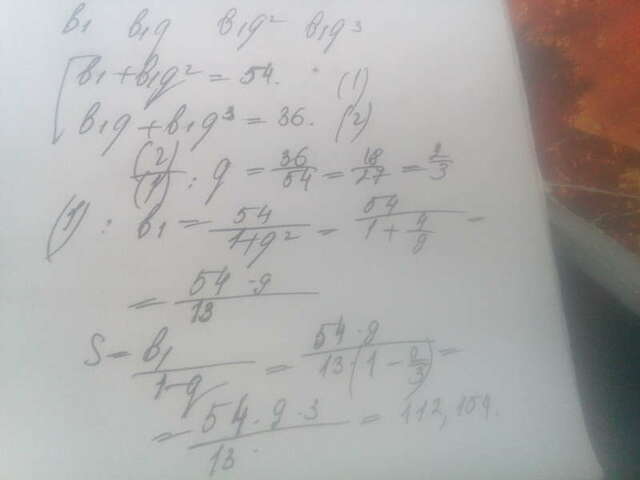 b₁ b₁q b₁q² b₁q³
b₁ + b₁q² = 54. (1)
b₁q + b₁q³ = 36. (2)
(2)/(1) : q = 36/54 = 18/27 = 2/3
(1) : b₁ = 54/(1+q²) = 54/(1 + 4/9) =
= 54·9/13
S = b₁/(1-q) = 54·9/(13·(1 - 2/3)) =
= 54·9·3/13 = 112,154.